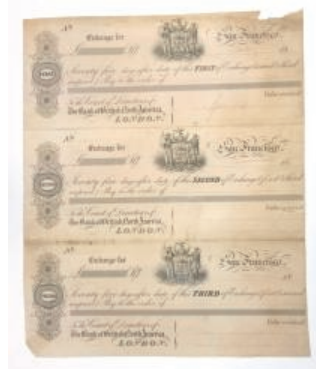 No
Exchange for
San Francisco,
18
Seventy five days after date of this FIRST of Exchange (second & third
unpaid) Pay to the order of
Value received
To the Court of Directors of
The Bank of British North America,
LONDON.
No
Exchange for
San Francisco,
18
Seventy five days after date of this SECOND of Exchange (first & third
unpaid) Pay to the order of
Value received
To the Court of Directors of
The Bank of British North America,
LONDON.
No
Exchange for
San Francisco,
18
Seventy five days after date of this THIRD of Exchange (first and second
unpaid) Pay to the order of
Value received
To the Court of Directors of
The Bank of British North America,
LONDON.